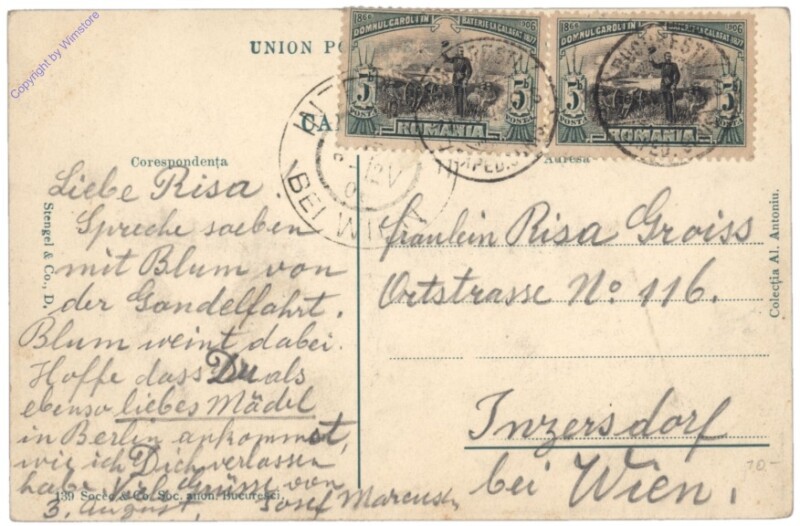 Copyright by Wimstore
UNION PO
CAR
1866 DOMNUL CAROL I IN BATERIE LA CALAFAT 1877 1906
5B POSTA 5B POSTA
ROMANIA
1866 DOMNUL CAROL I IN BATERIE LA CALAFAT 1877 1906
5B POSTA 5B POSTA
ROMANIA
BUCURESTI
BEI WIEN
Corespondența
Adresa
Liebe Risa.
Spreche soeben
mit Blum von
der Gondelfahrt.
Blum weint dabei.
Hoffe dass Du als
ebenso liebes Mädel
in Berlin ankommst,
wie ich Dich verlassen
habe. Grüsse von
3. August. Josef
Fräulein Risa Groiss
Ortstrasse No 116.
Inzersdorf
bei Wien.
10.-
Stengel & Co., D.
Colecția Al. Antoniu.
139 Socec & Co. Soc. anon. Bucuresci.